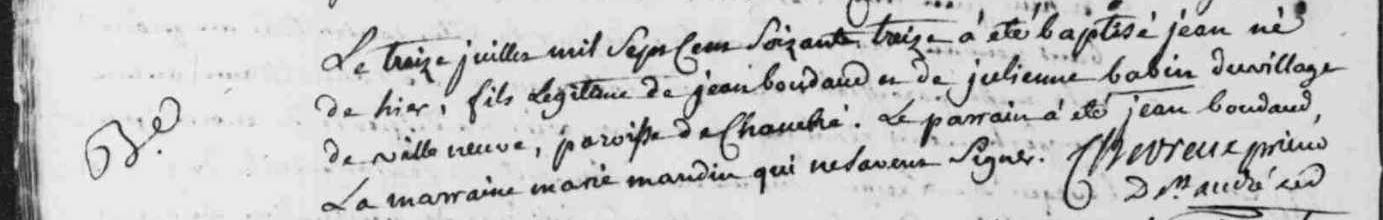 Be.
Le treize juillet mil Sept Cent Soixante treize à été baptisé jean né
de hier, fils Legitime de jean boudaud et de julienne babin du village
de ville neuve, paroisse de Chauché. Le parrain à été jean boudaud,
La marraine marie mandin qui ne savent Signer. prieur
De St andré